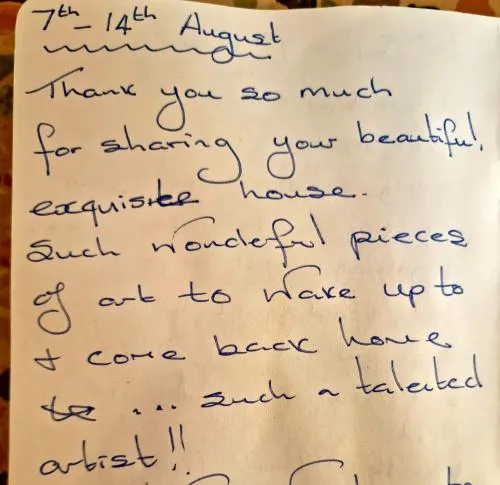 7th - 14th August
Thank you so much
for sharing your beautiful,
exquisite house.
Such wonderful pieces
of art to wake up to
+ come back home
to ... such a talented
artist!!
to